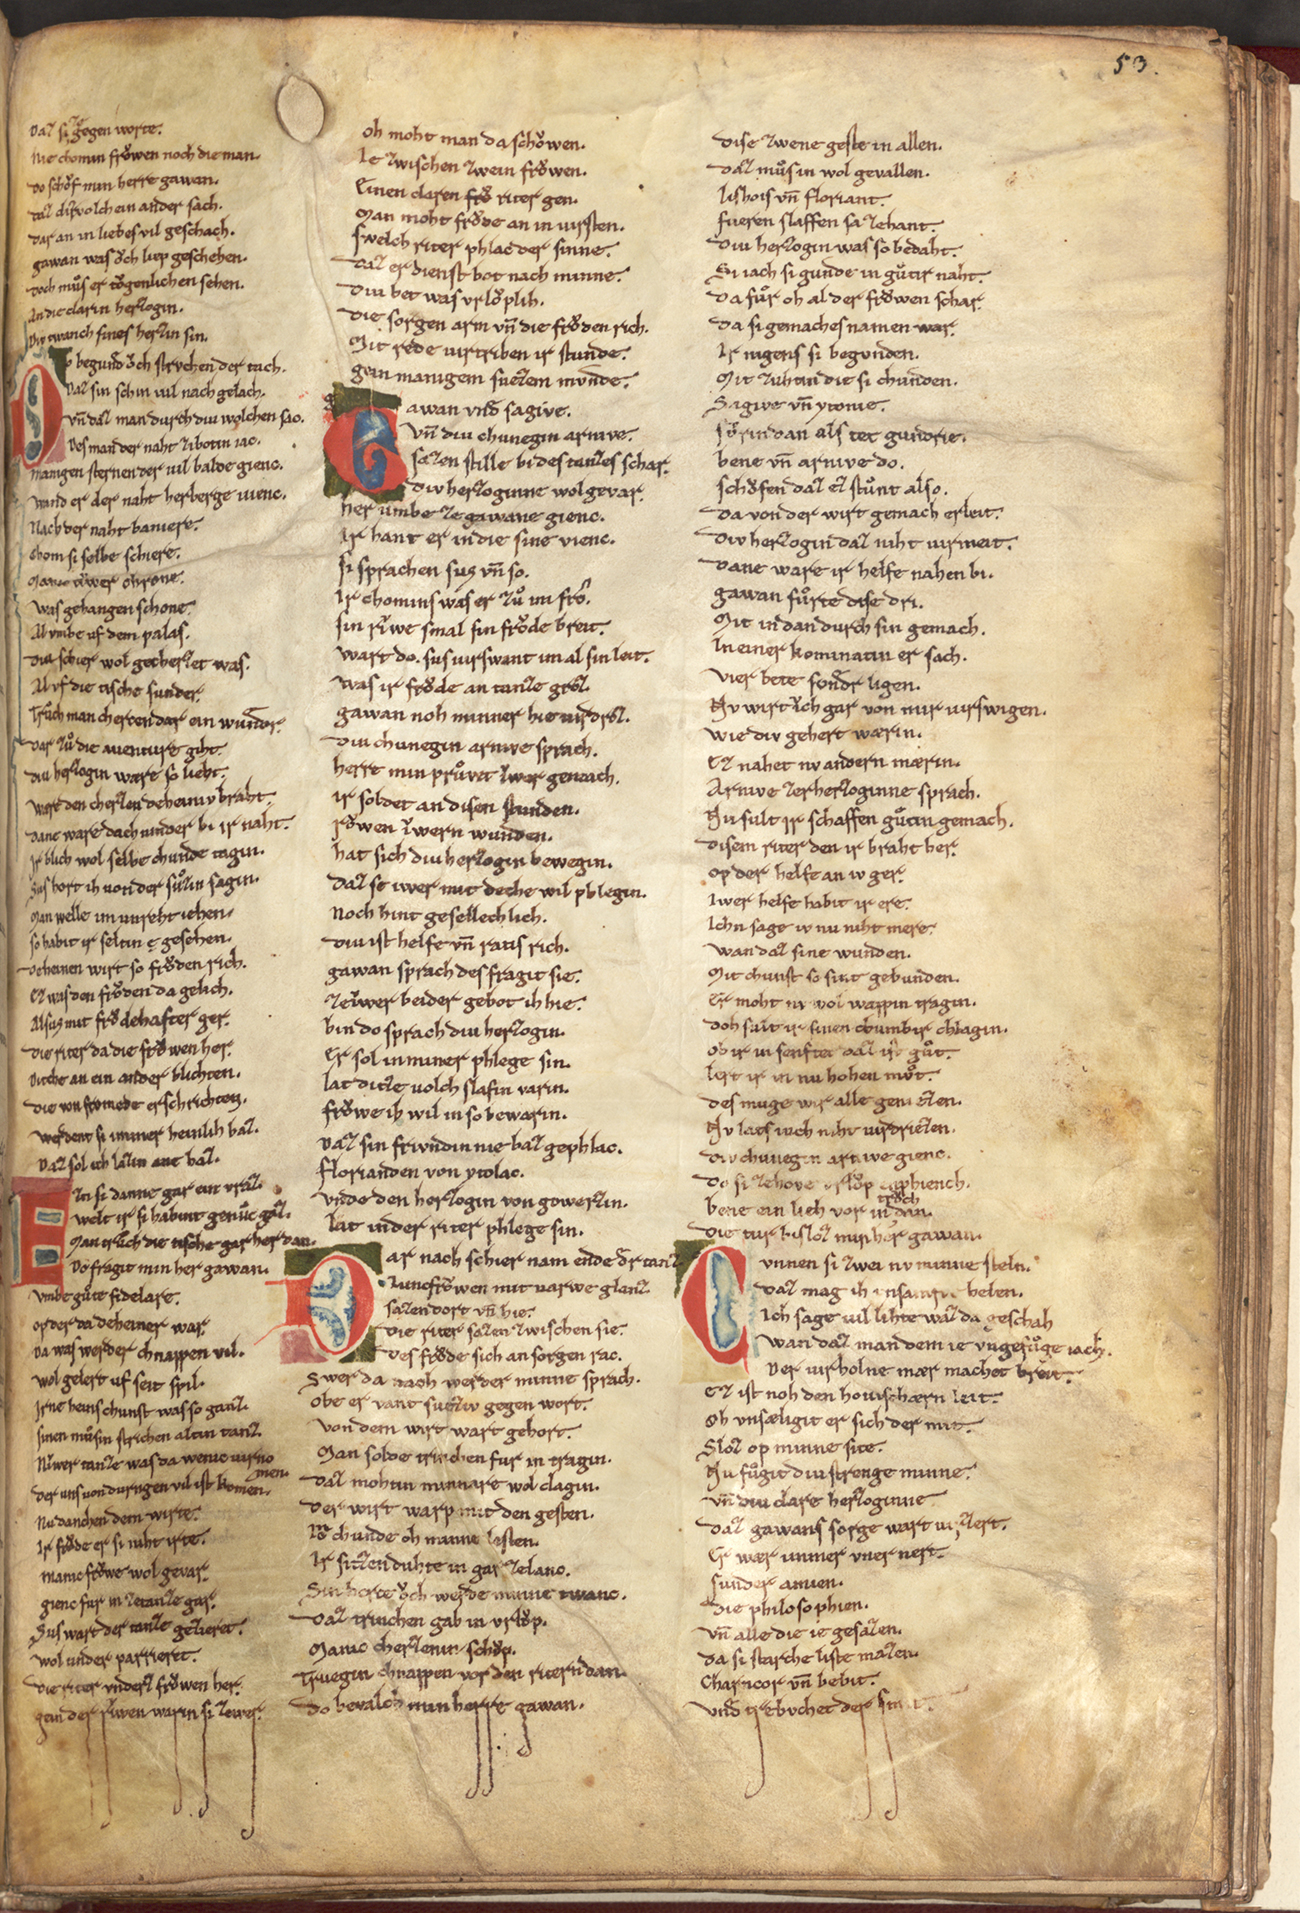 53.
Daz si gegen worte.
Nie chomin frŏwen noch die man.
Do schŏf min herre gawan.
daz diz volch ein ander sach.
Dar an in liebes vil geschach.
gawan was ŏch liep geschehen.
Doch mŭs er tŏgenlichen sehen.
An die clarin herzogin.
Div twanch sines herzin sin.
Do begund ŏch struchen der tach.
Daz sin schin vil nach gelach.
Vñ daz man durch div wolchen sac.
Des man der naht zi botin iac.
manigen sternen der vil balde gienc.
Wand er der naht herberge vienc.
Nach der naht baniere.
chom si selbe schiere.
Manic tiwer chrone.
Was gehangen schone.
Al vmbe vf dem palas.
Div schier wol gecherzet was.
Al vf die tische sunder.
Trŭch man cherzen dar ein wunder.
Dar zŭ die auenture giht.
Div herzogin ware so lieht.
Ware den cherzen deheiniv braht.
Dane ware doch under bi ir naht.
Ir blich wol selbe chunde tagin.
Sus hort ih von der sŭzin sagin.
Man welle im vnreht iehen.
so habit ir seltin e gesehen.
Deheinen wirt so frŏden rich.
Ez was den frŏden da gelich.
Alsus mit frŏdehafter ger.
Die riter da die frŏwen her.
Diche an ein ander blichten.
Die von fromede erschrichten.
Werdent si immer heinlih baz.
Daz sol ich lazin ane haz.
Ezn si danne gar ein vraz.
welt ir si habint genŭc gaz.
Man trŭch die tische gar her dan.
Do fragit min her gawan.
vmbe gŭte fidelare.
op der da deheiner war.
Da was werder chnappen vil.
wol gelert uf seit spil.
Irne heins chunst was so ganz.
sinen mŭsin strichen altin tanz.
Niwer tanze was da wenic virnomen.
Der uns von durngen vil ist komen.
Nu danchen dem wirte.
Ir frŏde er si niht irte.
manic frŏwe wol gevar.
gienc fur in ze tanze gar.
Sus wart der tanze gezieret.
Wol under parrieret.
Die riter underz frŏwen her.
gein der riwen warin si ze wer.
oh moht man da schŏwen.
Ie zwischen zwein frŏwen.
Einen claren riter gen.
Man moht frŏde an in virsten.
Swelch riter phlac der sinne.
daz er dienst bot nach minne.
Div bet was vrlŏplih.
Die sorgen arm vñ die frŏden rich.
Mit rede virtriben ir stunde.
gein manigem suezem mvnde.
Gawan vnd sagive.
Vñ div chunegin arnive.
sazen stille bi des tanzes schar.
Div herzoginne wol gevar.
her umbe ze gawane gienc.
Ir hant er in die sine vienc.
si sprachen sus vñ so.
Ir chomins was er zŭ im fro.
sin riwe smal sin frŏde breit.
wart do. sus virswant im al sin leit.
Was ir frŏde an tanze groz.
gawan noh minner hie virdroz.
Div chunegin arnive sprach.
herre min prŭvet iwer gemach.
ir soldet an disen stunden.
rŏwen iwern wunden.
hat sich div herzogin bewegin.
daz se iwer mit deche wil phlegin.
Noch hint gesellechlich.
Div ist helfe vñ ratis rich.
gawan sprach des fragit sie.
ze iwer beider gebot ih hie.
bin do sprach div herzogin.
Er sol in miner phlege sin.
lat ditze volch slafin varin.
frŏwe ih wil in so bewarin.
Daz sin friwndin nie baz gephlac.
florianden von ytolac.
Vnde den herzogin von gowerzin.
Lat in der riter phlege sin.
Dar nach schier nam ende der tanz
Iuncfrŏwen mit varwe glanz.
sazen dort vñ hie.
Die riter sazen zwischen sie.
Des frŏde sich an sorgen rac.
Swer da nach werder minne sprach.
obe er vant suziv gegen wort.
Von dem wirt wart gehort.
Man solde trinchen fur in tragin.
Daz mohtin minnare wol clagin.
Der wirt warp mit den gesten.
In chunde oh minne lesten.
Ir sitzen duhte in gar ze lanc.
Sin herte ŏch werde minne twanc.
Daz trinchen gab in vrlŏp.
Manic cherzenin schŏp.
Truegin chnappen vor den ritern dan.
Do bevalch min herre gawan.
dise zwene geste in allen.
daz mŭs in wol gevallen.
lishois vñ floriant.
fueren slaffen sa zehant.
Div herzogin was so bedaht.
Si iach si gunde in gŭtir naht.
Da fŭr oh al der frŏwen schar.
Da si gemaches namen war.
Ir nigens si begvnden.
Mit zuhtin die si chunden.
Sagiwe vñ ytonie.
fŏrin dan als tet gundrie.
bene vñ arniwe do.
schŏfen daz ez stŭnt also.
Da von der wirt gemach erleit.
Div herzogin daz niht virmeit.
Dane ware ir helfe nahen bi.
gawan fŭrte dise dri.
Mit in dan durch sin gemach.
In einer kominatin er sach.
Vier bete sonder ligen.
Nv wirt ich gar von mir virswigen.
Wie div gehert wærin.
Ez nahet nv andern mærin.
Arniwe zer herzoginne sprach.
Nu sult ir schaffen gŭtin gemach.
Disem riter den ir braht her.
op der helfe an iv ger.
Iwer helfe habit ir ere.
Ichn sage iv nu niht mere.
wan daz sine wunden.
Mit chunst so sint gebunden.
Er moht nv wol wappin tragin.
Doh sult ir sinen chumbir chlagin.
ob ir in senftet daz ist gŭt.
lert ir in nu hohen mŭt.
des muge wir alle geniezen.
Nv lats iwch niht virdriezen.
Div chunegin arniwe gienc.
Do si ze hove urlŏp enphiench.
bene ein lieh vor in trŭch dan.
die tur bisloz min her gawan.
Cvnnen si zwei nv minne steln.
Daz mag ih unsanfte helen.
Ich sage vil lihte waz da geschah
Wan daz man dem ie vngefŭge iach.
Der virholne mær machet breit.
Ez ist noh den hovischærn leit.
Oh vnsæligit er sich der mit.
Sloz op minne site.
Nu fŭgit div strenge minne.
Vñ div clare herzoginne
Daz gawans sorge wart virzert.
Er wær immer vner nert.
sunder amien.
Die philosophien.
Vñ alle die ie gesazen.
Da si starche liste mazen.
Chancor vñ bebit.
Vnd trebvchet der smit.